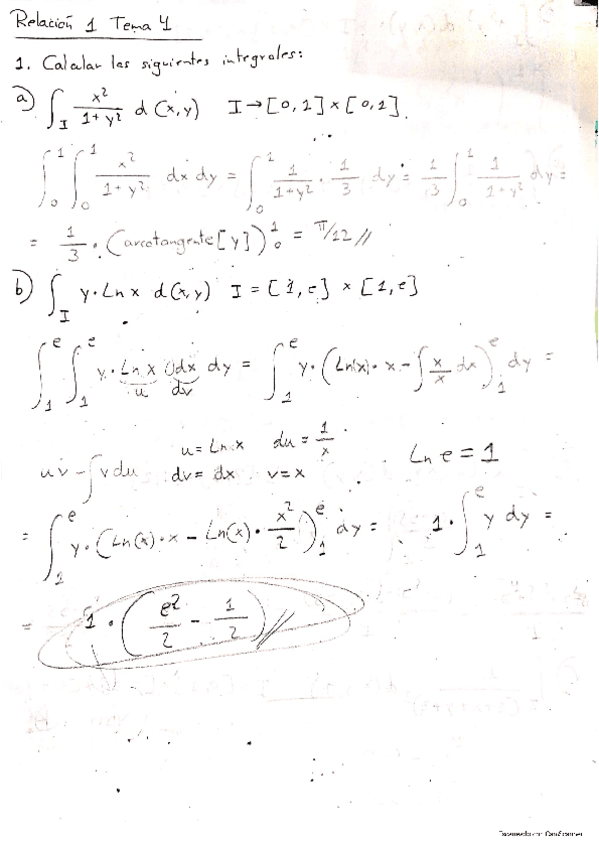 Relación 1 Tema 4
1. Calcular las siguientes integrales:
a) ∫_I x²/(1+y²) d(x,y)   I→[0,1]×[0,1].
∫₀¹ ∫₀¹ x²/(1+y²) dx dy = ∫₀¹ 1/(1+y²) · 1/3 dy = 1/3 ∫₀¹ 1/(1+y²) dy =
= 1/3 · (arcotangente[y])₀¹ = π/12 //
b) ∫_I y·Ln x d(x,y)   I = [1,e] × [1,e]
∫₁ᵉ ∫₁ᵉ y·Ln x dx dy = ∫₁ᵉ y·(Ln(x)·x - ∫ x/x dx)₁ᵉ dy =
u dv
u = Ln x   du = 1/x   Ln e = 1
uv - ∫v du   dv = dx   v = x
= ∫₁ᵉ y·(Ln(x)·x - Ln(x)·x²/2)₁ᵉ dy = 1·∫₁ᵉ y dy =
= 1·(e²/2 - 1/2) //